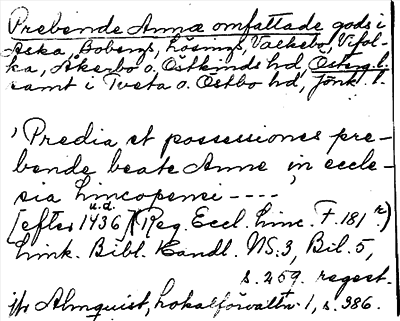 Prebende Annæ omfattade gods i
Aska, Bobergs, Lösings, Valkebo, Vifol-
ka, Åkerbo o. Östkinds hd, Österg. l.
samt i Tveta o. Östbo hd, Jönk. l.
"Predia et possessiones pre-
bende beate Anne in eccle-
sia Lincopensi ----"
u.d.
[efter 1436] (Reg. Eccl. Linc. F. 181 r.)
Link. Bibl. Handl. NS:3, Bil. 5,
s. 259. regest.
Jfr Almquist, Lokalförvaltn. 1, s. 386.